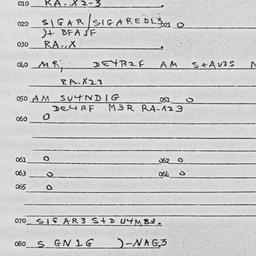 010 RA..X2-3
020 SIGAR/SIGAREDL3 021 0
)+ BFAJF
030 RA..X
040 MR, DEYR2F AM S+AU2S
RA-X23
050 AM SU4NDIG 051 0
DE4AF M3R RA-X23
060 0
061 0 062 0
063 0 064 0
065 0
070 SIGAR3 S+D U4MB2.
080 S GN1G )-NAG3